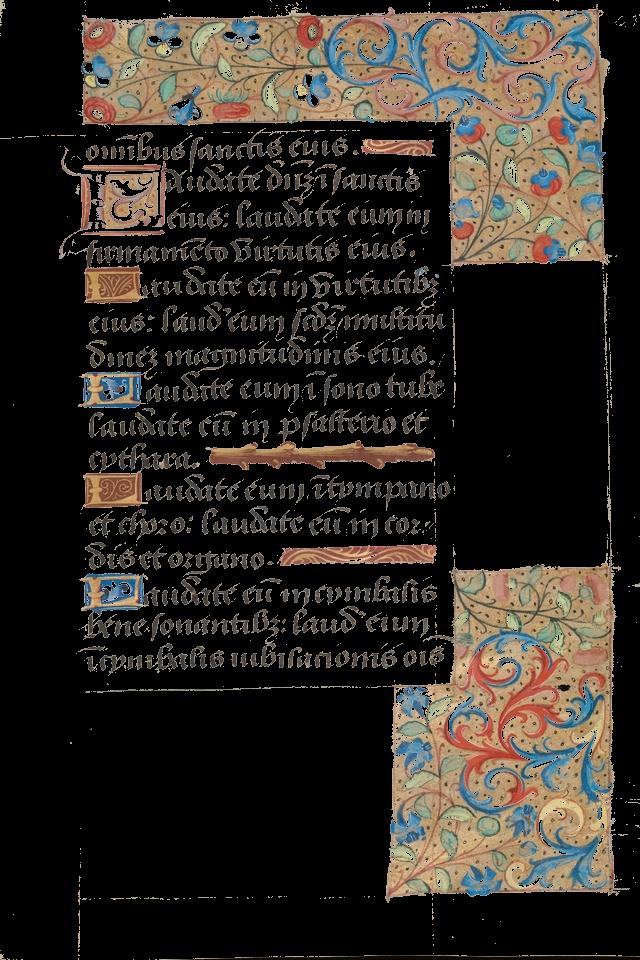 omībus sanctis eius.
Laudate dn̄ȝ ī sanctis
eius: laudate eum in
firmamēto virtutis eius.
Laudate eū in virtutibȝ
eius: laud' eum scdȝ multitu
dineȝ magnitudinis eius.
Laudate eum ī sono tube
laudate eū in psalterio et
cythara.
Laudate eum ī tympano
et choro: laudate eū in cor-
dis et organo.
Laudate eū in cymbalis
bene sonantibȝ: laud' eum
ī cymbalis iubilacionis oīs